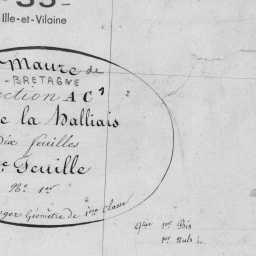 35
Ille-et-Vilaine
Maure de
-BRETAGNE
ection AC¹ 2
e la Halliais
Dix feuilles
Feuille
Nº 1er
Géomètre de 1ère Classe
1er Bis